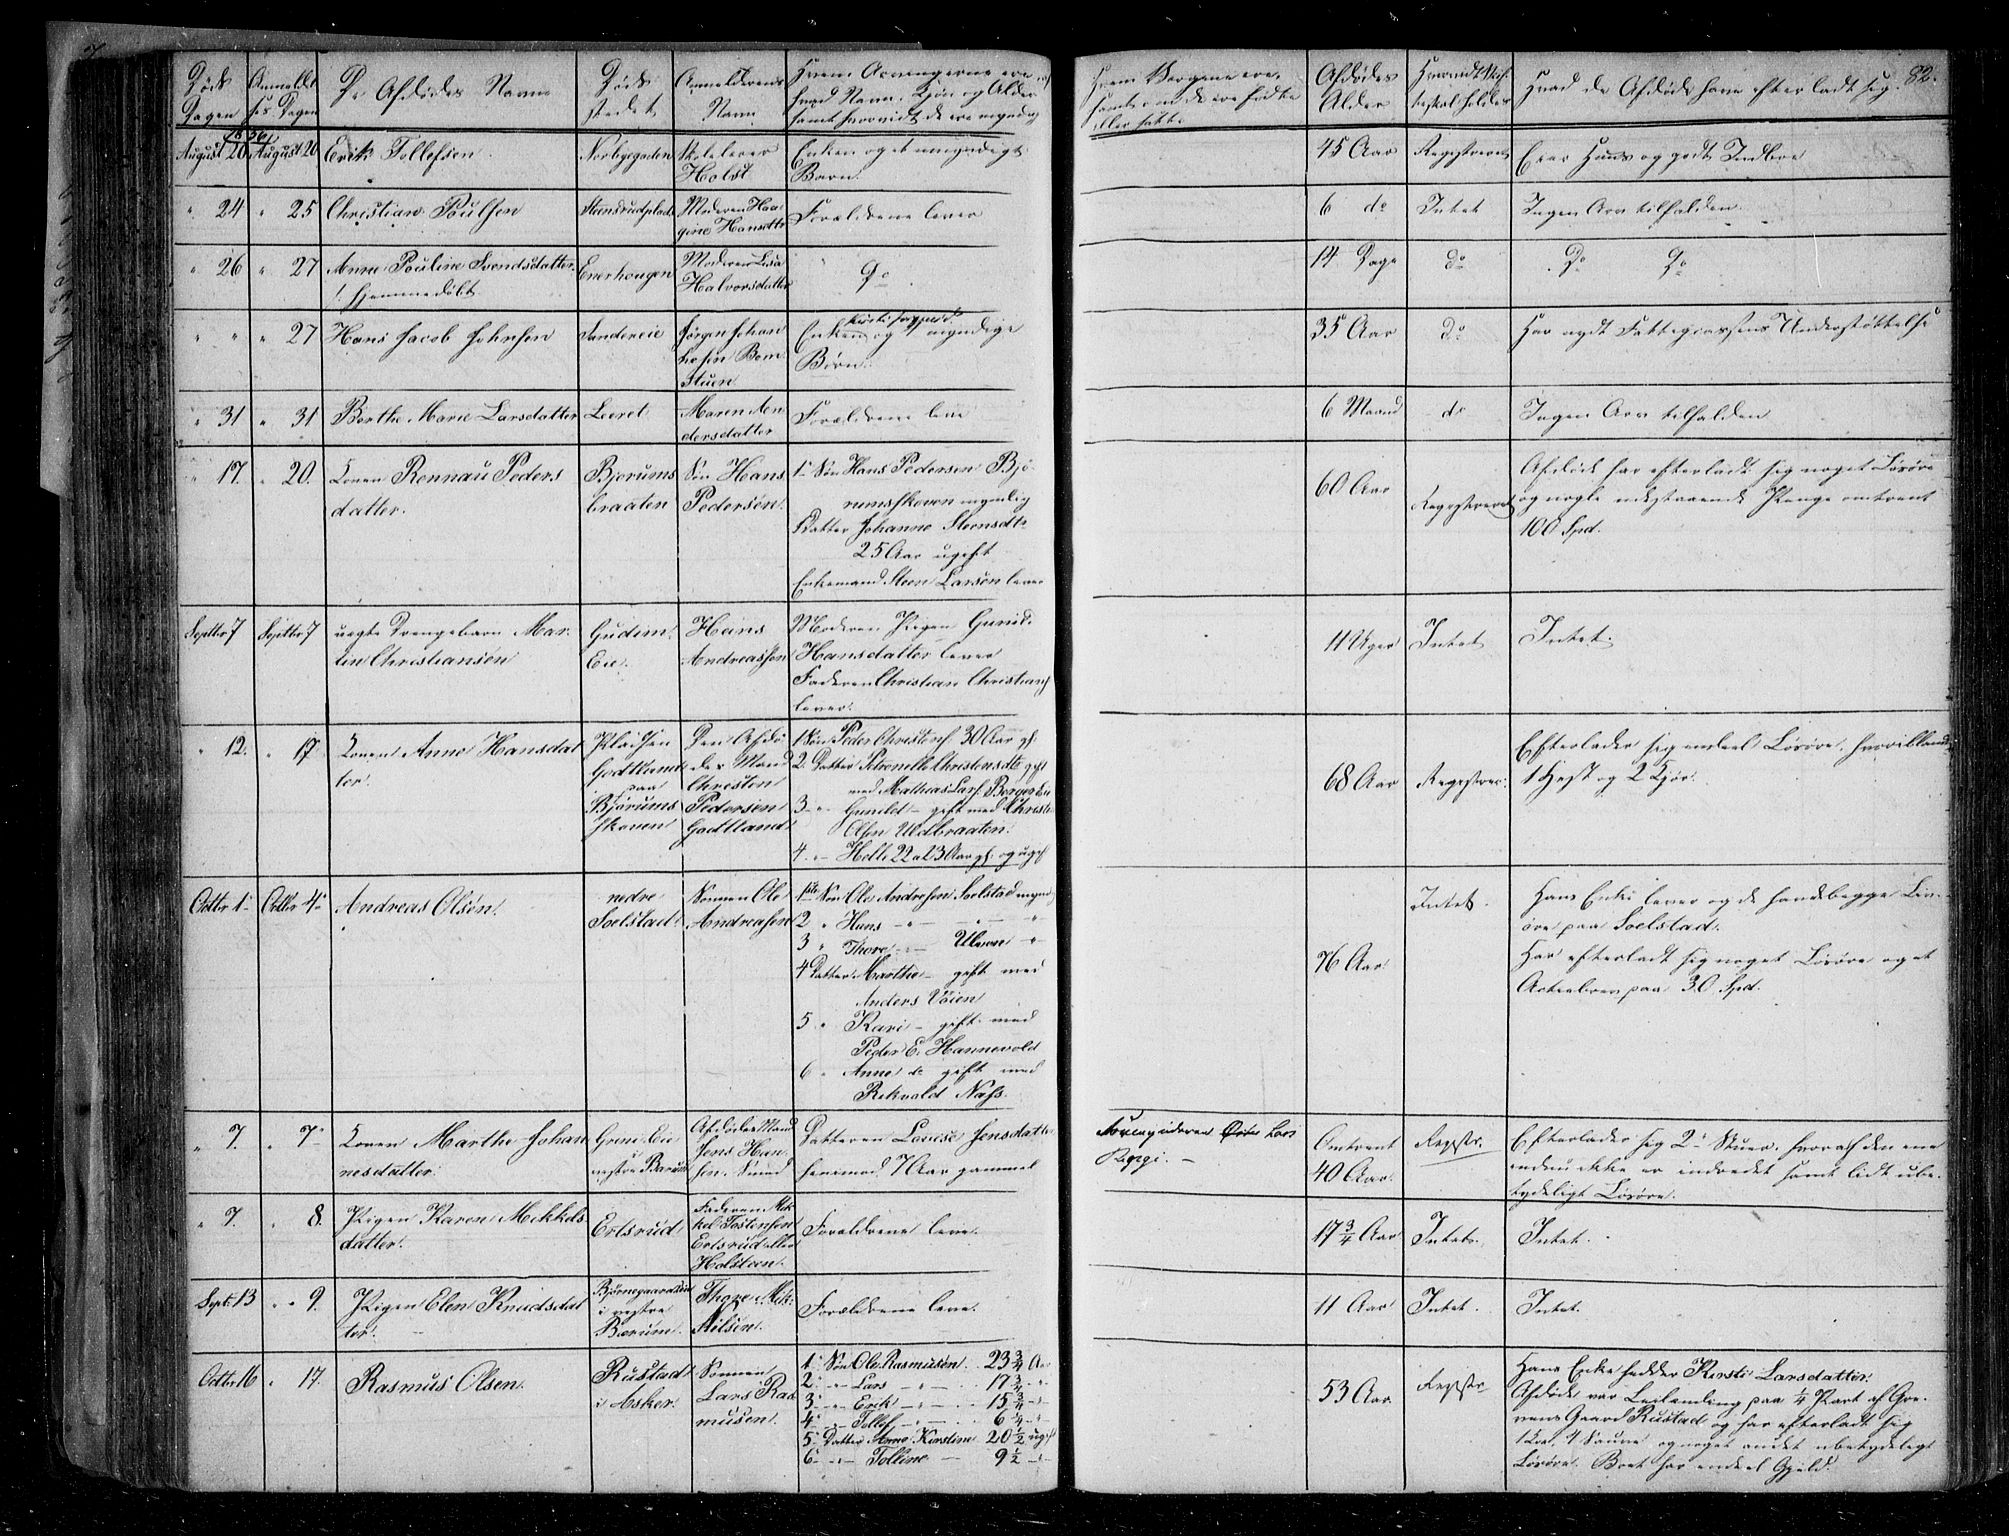 Døds Dagen
Anmeldelses Dagen
De Afdødes Navn
Døds stedet
Anmelderens Navn
Hvem Arvingerne ere,
hvad Navn, Kjøn og Alder
samt hvorvidt de ere myndige
Hvem Værgerne ere,
eller fatt.
Afdødes Alder
Hvad de Afdøde have efterladt sig.
82.
August 20 August 20 Erik Tollefsen
Skolelærer Holst
Enken og et umyndigt Barn.
45 Aar Registreret Eier Huus og godt Indboe
" 24 " 25 Christian Poulsen
Moderen Haagine Hansdttr
Forældrene lever
6 do Intet Ingen Arv tilfalden.
" 26 " 27 Anne Pouline Svendsdatter
! hjemmedøbt
Enerhougen
Moderen Lisa Halvorsdatter
Do
14 Dage do Do Do
" " " 27 Hans Jacob Johnsen
Sandereie
Jørgen Johan
Bomstuen
Enken og myndige
Børn.
35 Aar do Har nydt Fattigcassens Understøttelse
" 31 " 31 Berthe Marie Larsdatter
Leeret
Maren Andersdatter
Forældrene leve
6 Maand do Ingen Arv tilfalden
" 17. " 20. Konen Rennau Pedersdatter.
Bjerumsbraaten
Søn Hans Pedersen.
1 Søn Hans Pedersen Bjørumsskoven myndig
Datter Johanne Steensdtr
25 Aar ugift
Enkemand Steen Larsen lever
60 Aar Registreret
Afdøde har efterladt sig noget Løsøre
og nogle udestaaende Penge omtrent
100 Spd.
Septbr 7 Septbr 7 uegte Drengebarn Martin Christiansen
Gudim Eie.
Hans Andreassen
Moderen Pigen Gunild
Hansdatter lever
Faderen Christian Christians
lever.
11 Uger Intet Intet.
" 12. " 17 Konen Anne Hansdatter.
Godtland
paa
Bjørums
skoven
Den Afdødes Mand
Christen
Pedersen
Godtland
1 Søn Peder Christens. 30 Aar gl.
2. Datter Petronelle Christensdtr gift
med Mathias Lars. Borgen Eie
3 " Gunild - gift med Christian
Olsen Uldbraaten.
4. " Helle 22 a 23 Aar gl. og ugift
68 Aar Registrer:
Efterlader sig endeel Løsøre, hvoriblandt
1 Hest og 2 Kjør.
Octbr 1 Octbr 4 Andreas Olsen.
nedre Soelstad
Sønnen Ole Andreasen
1ste Søn Ole Andresen Soelstad myndig
2 " Hans
3 " Thore
4 Datter Marthe - gift med
Anders Vøien
5 " Kari - gift med
Peder E. Hannevold
6 " Anne do gift med
Rikvald Næss.
76 Aar Intet.
Hans Enke lever og de havde begge Leveøre paa Soelstad.
Har efterladt sig noget Løsøre og et
Actiebrev paa 30 Spd.
" 7. " 7 Konen Marthe Johannesdatter.
Grini Eie
vestre Bærum
Afdødes Mand
Jens Hansen. Smed
Datteren Lovise Jensdatter
henimod 7 Aar gammel
Omtrent 40 Aar. Regstr.
Efterlader sig 2 Stuer, hvoraf den ene
endnu ikke er indredet samt lidt ubetydeligt Løsøre.
" 7. " 8. Pigen Karen Mikkelsdatter.
Ertsrud
Faderen Mikkel Tostensen
Ertsrud eller
Holsteen.
Forældrene leve.
17 3/4 Aar Intet. Intet.
Sept: 13 " " 9. Pigen Elen Knudsdatter.
i vestre
Bærum.
Thore Mikkelsen.
Forældrene leve.
11 Aar Intet. Intet.
Octbr 16 " 17. Rasmus Olsen.
Rustad
i Asker.
Sønnen
Lars Rasmusen.
1 Søn Ole Rasmusen. 23 3/4 Aar
2 " Lars - 17 3/4 "
3 " Erik - 15 3/4 "
4 " Tollef - 6 1/4 "
5 Datter Anne Kirstine 20 1/2 ugift
6 " Tolline - 9 1/2 "
53 Aar. Regstr
Hans Enke hedder Kirsti Larsdatter.
Afdøde var Leilænding paa 1/4 Part af
Gaard Rustad og har efterladt sig
1 Koe, 4 Sauer og noget andet ubetydeligt
Løsøre. Boet har endeel Gjeld.